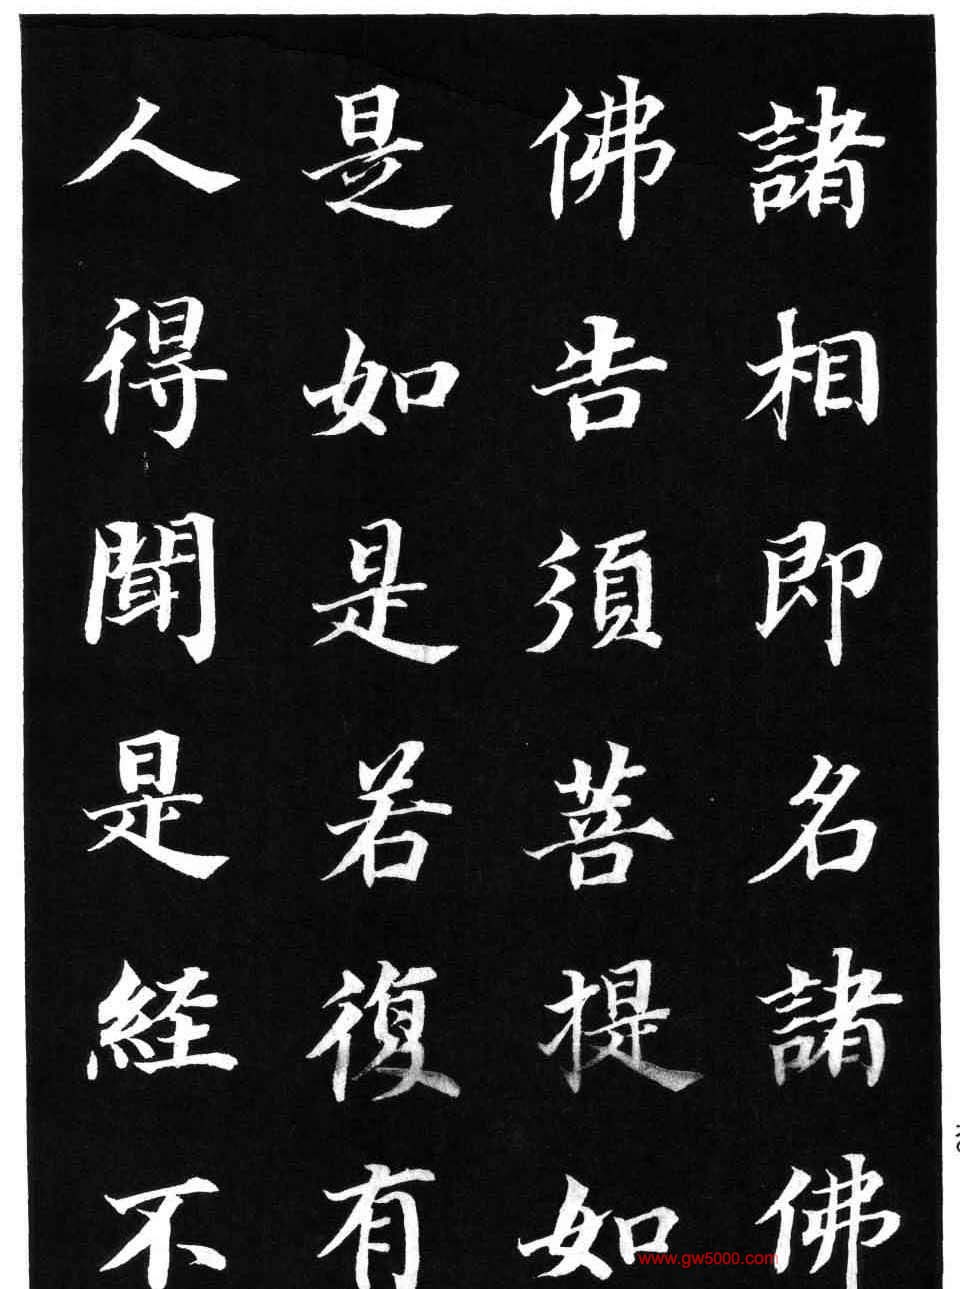 諸相即名諸佛
佛告須菩提如
是如是若復有
人得聞是経不
www.gw5000.com